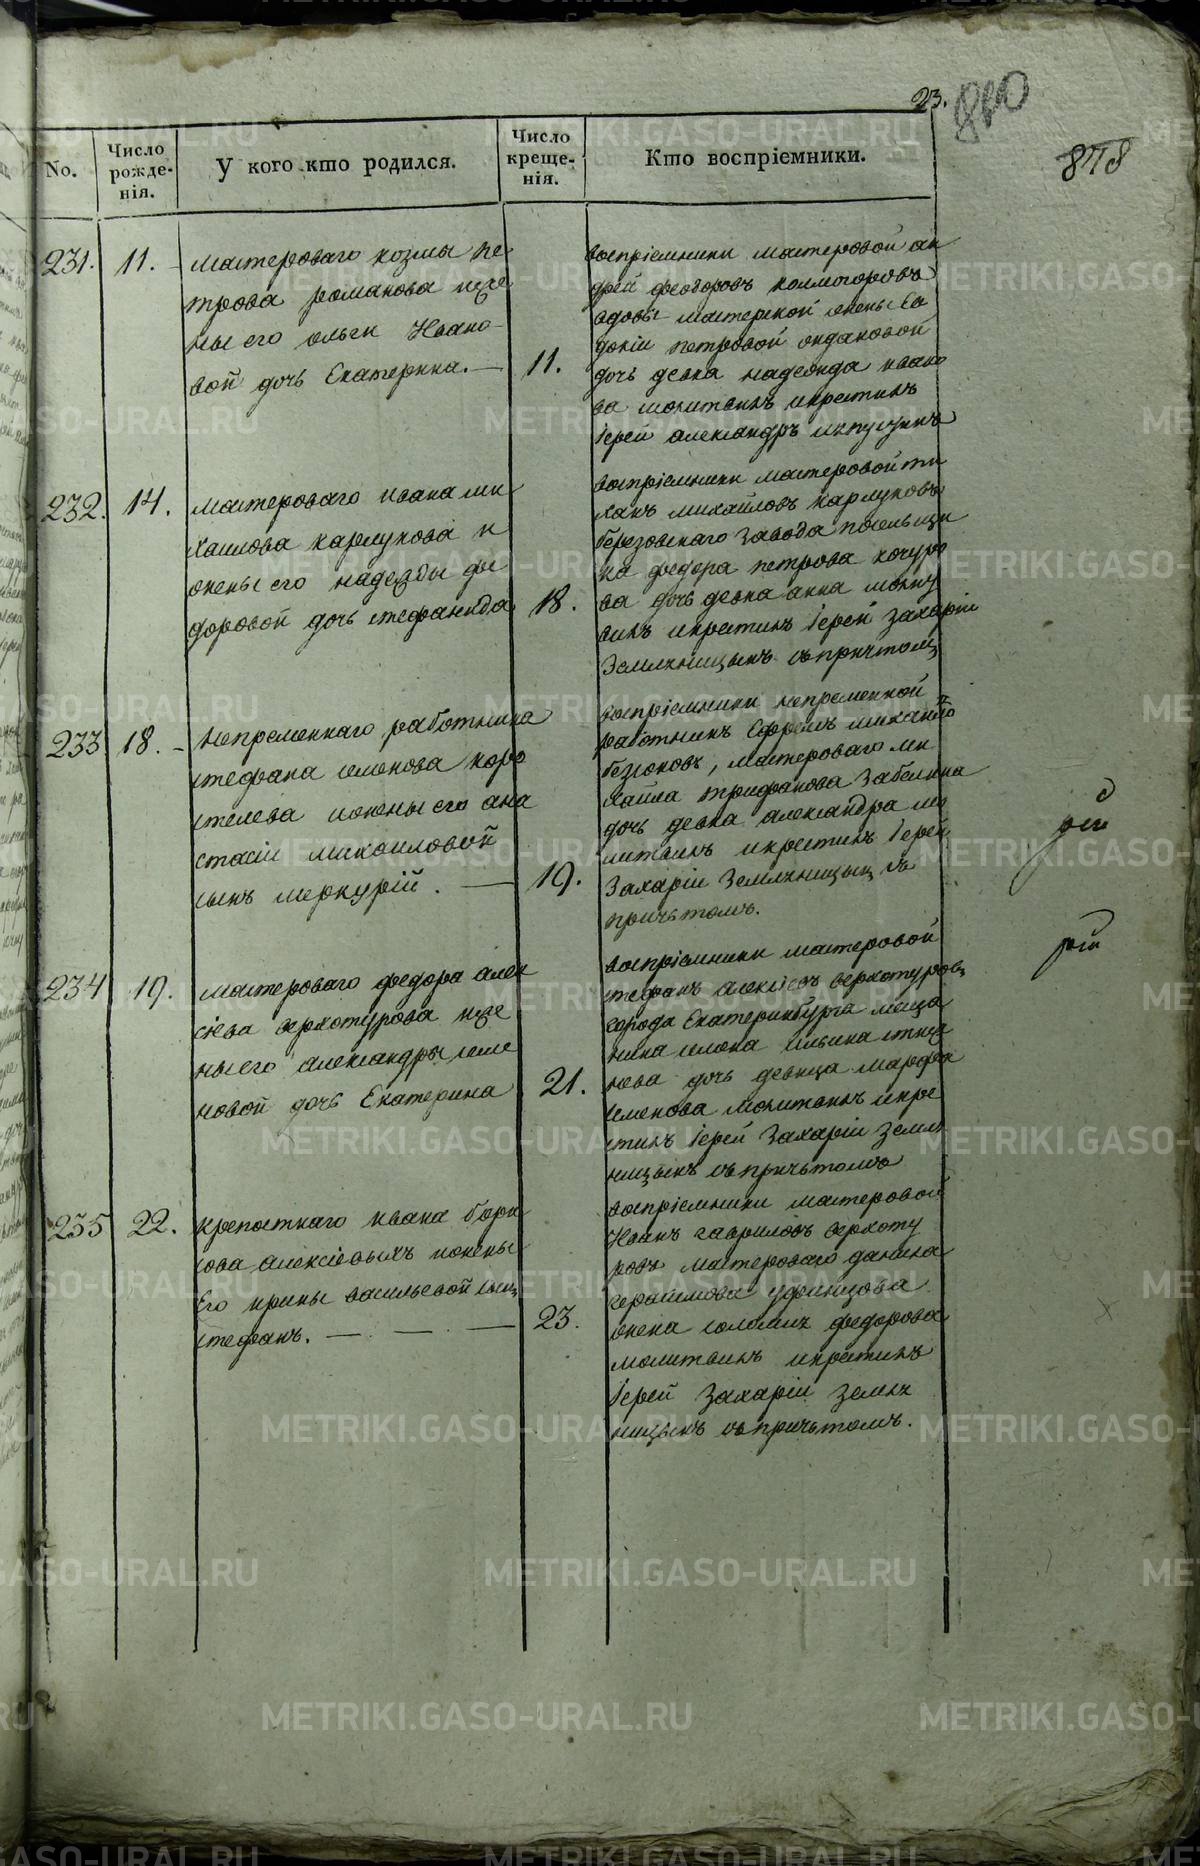 23.
878
No.
Число рожде-нія.
У кого кто родился.
Число креще-нія.
Кто воспріемники.
231.
11.
мастероваго козмы пе
трова романова иже
ны его ольги Ивано-
вой дочь Екатерина.
11.
воспріемники мастеровой ан
дрей феодоровъ колмогоровъ
вдовы мастерской жены Ев
докіи петровой
дочь девка надежда ивано
ва молитвилъ икрестилъ
Іерей александръ
232.
14.
мастероваго ивана ми
хаилова кармукова и
жены его надежды фе
доровой дочь стефанида
18.
воспріемники мастеровой
михайловъ кармуковъ
березовскаго завода посельщи
ка федера петрова
ва дочь девка анна молит
вилъ икрестилъ Іерей Захарій
Земляницынъ съпричтомъ
233
18.
непременнаго работника
стефана семенова коро
стелева ижены его ана
стасіи михаиловой
сынъ меркурій.
19.
воспріемники непременной
работникъ Ефремъ михаило
, мастероваго ми
хайла трифанова Забелина
дочь девка александра мо
литвилъ икрестилъ Іерей
Захарій Земляницынъ съ
причьтомъ.
234
19.
мастероваго федора алек
сіева верхотурова иже
ны его александры семе
новой дочь Екатерина
21.
воспріемники мастеровой
стефанъ алексіевъ верхотуровъ
города Екатеринбурга меща
нина семена Ильина
нева дочь девица марфа
семенова молитвилъ икре
стилъ Іерей Захарій земля
ницынъ съпричьтомъ
235
22.
крепостнаго ивана бори
сова алексіевыхъ ижены
Его ирины васильевой сынъ
стефанъ.
23.
воспріемники мастеровой
Иванъ гавриловъ верхоту
ровъ мастероваго данила
герасимова уфинцова
жена федорова
молитвилъ икрестилъ
Іерей Захарій земля
ницынъ съпричьтомъ.
METRIKI.GASO-URAL.RU